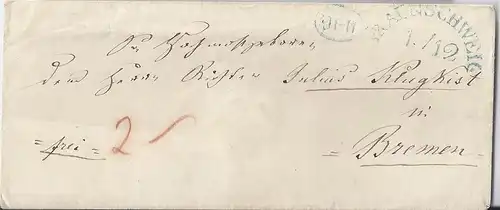 9-11
BRAUNSCHWEIG
1/12
Sr. Hochwohlgeboren
dem Herrn Richter Julius Klugkist
in
= frei = 2
= Bremen =